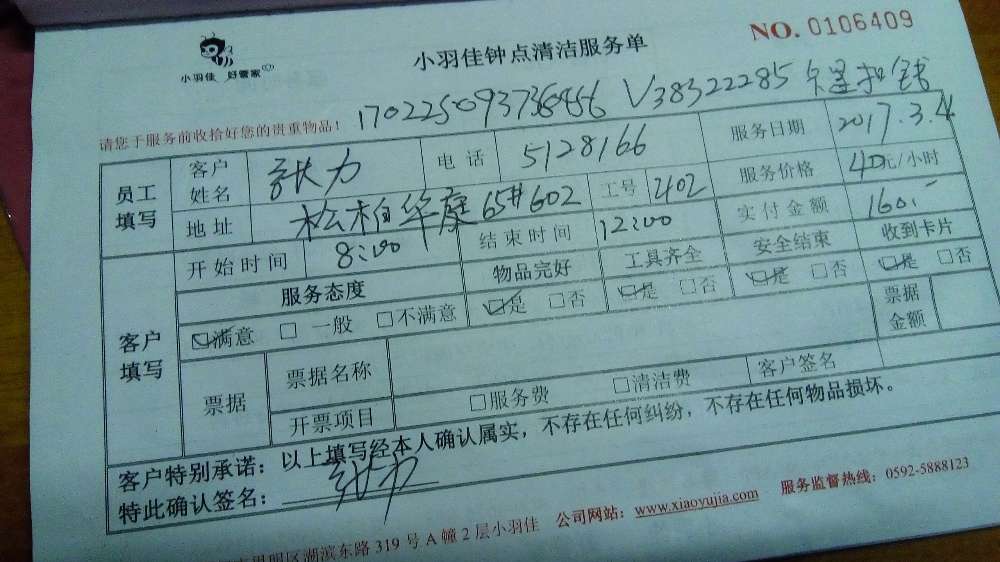 小羽佳 好管家
小羽佳钟点清洁服务单
NO. 0106409
170225093736456 V38322285 卡里扣钱
请您于服务前收拾好您的贵重物品！
员工填写 客户姓名 张力 电话 5128166 服务日期 2017.3.4
地址 松柏华庭65#602 工号 2102 服务价格 40元/小时
客户填写 开始时间 8:00 结束时间 12:00 实付金额 160.
服务态度 物品完好 工具齐全 安全结束 收到卡片
☑满意 □一般 □不满意 ☑是 □否 ☑是 □否 ☑是 □否 ☑是 □否
票据 票据名称 票据金额
开票项目 □服务费 □清洁费 客户签名
客户特别承诺：以上填写经本人确认属实，不存在任何纠纷，不存在任何物品损坏。
特此确认签名： 张力
思明区湖滨东路 319 号 A 幢 2 层小羽佳 公司网站：www.xiaoyujia.com 服务监督热线：0592-5888123